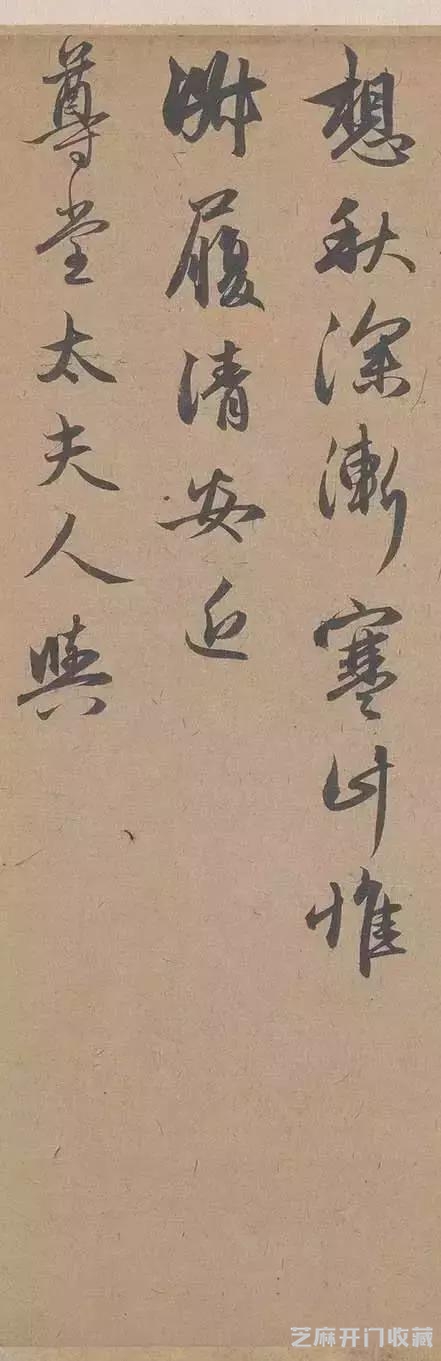 想秋深漸寒計惟
淑履清安近
尊堂太夫人與
芝麻开门收藏